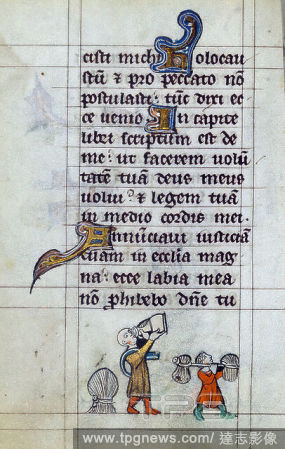 cisti michi Holocau
stū ⁊ pro peccato nō
postulasti: tūc dixi ec
ce uenio In capite
libri scriptum est de
me: ut facerem uolū
tatē tuā deus meus
uolui: ⁊ legem tuā
in medio cordis mei.
Annūciaui iusticiā
tuam in ecclīa mag
na: ecce labia mea
nō ꝓhibebo dn̄e tu
TPG
www.tpgnews.com/ 達志影像